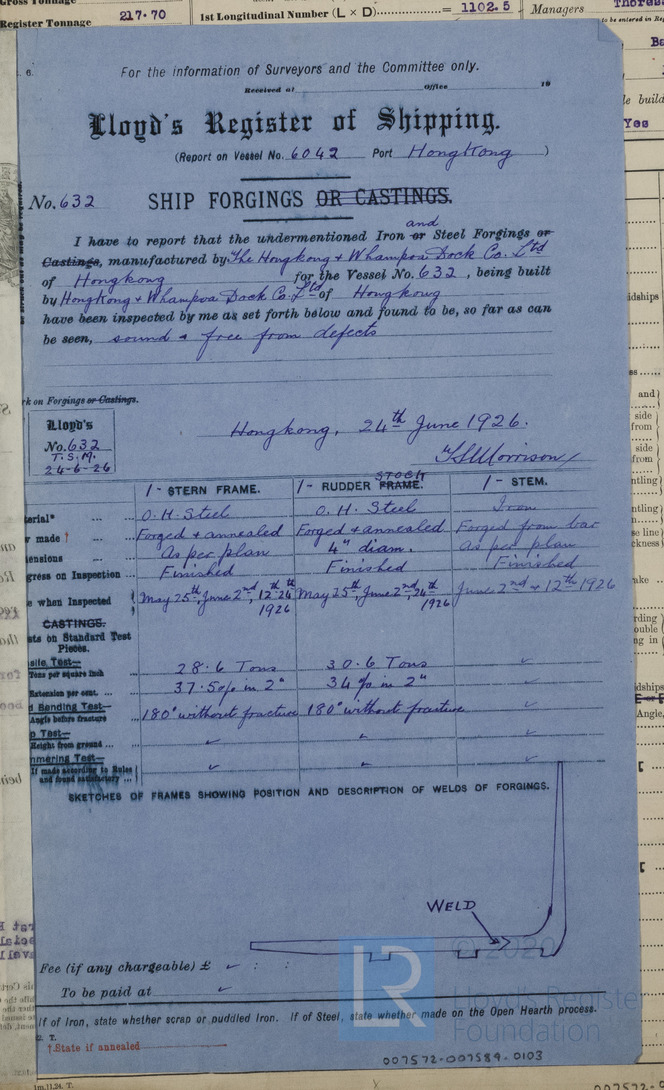 Gross Tonnage
Register Tonnage 217.70
1st Longitudinal Number (L × D) = 1102.5
Managers
to be entered in Reg
6.
For the information of Surveyors and the Committee only.
Received at Office 19
Lloyd's Register of Shipping.
(Report on Vessel No. 6042 Port HongKong )
No. 632 SHIP FORGINGS OR CASTINGS.
and
I have to report that the undermentioned Iron or Steel Forgings or
Castings, manufactured by The Hongkong & Whampoa Dock Co. Ltd
of Hongkong for the Vessel No. 632, being built
by HongKong & Whampoa Dock Co. Ltd of Hongkong
have been inspected by me as set forth below and found to be, so far as can
be seen, sound & free from defects
rk on Forgings or Castings.
Lloyd's
No. 632
T.S.M.
24-6-26
Hongkong, 24th June 1926.
T.S. Morrison
STOCK
1 - STERN FRAME. 1 - RUDDER FRAME. 1 - STEM.
terial* ... ... O.H. Steel O.H. Steel Iron
w made † ... Forged & annealed Forged & annealed Forged from bar
ensions ... As per plan 4" diam. As per plan
gress on Inspection ... Finished Finished Finished
e when Inspected May 25th, June 2nd, 12th 24th 1926 May 25th, June 2nd, 24th 1926 June 2nd & 12th 1926
CASTINGS.
sts on Standard Test
Pieces.
sile Test—
Tons per square inch 28.6 Tons 30.6 Tons ✓
Extension per cent. ... 37.5% in 2" 34% in 2" ✓
d Bending Test—
Angle before fracture 180° without fracture 180° without fracture ✓
p Test—
Height from ground ... ✓ ✓ ✓
mmering Test—
If made according to Rules and found satisfactory ... ✓ ✓ ✓
SKETCHES OF FRAMES SHOWING POSITION AND DESCRIPTION OF WELDS OF FORGINGS.
WELD
Fee (if any chargeable) £ ✓ : :
To be paid at ✓
If of Iron, state whether scrap or puddled Iron. If of Steel, state whether made on the Open Hearth process.
C. T.
† State if annealed
1m.11.24. T.
007572-007589-0103
LR
© 2020
Lloyd's Register
Foundation
le build
Yes